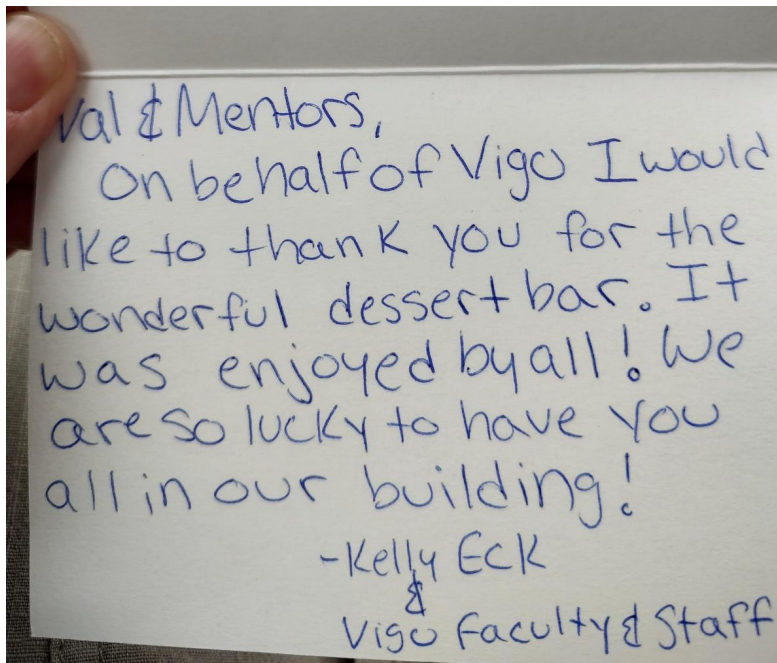 Val & Mentors,
On behalf of Vigo I would
like to thank you for the
wonderful dessert bar. It
was enjoyed by all! We
are so lucky to have you
all in our building!
-Kelly Eck
&
Vigo Faculty & Staff